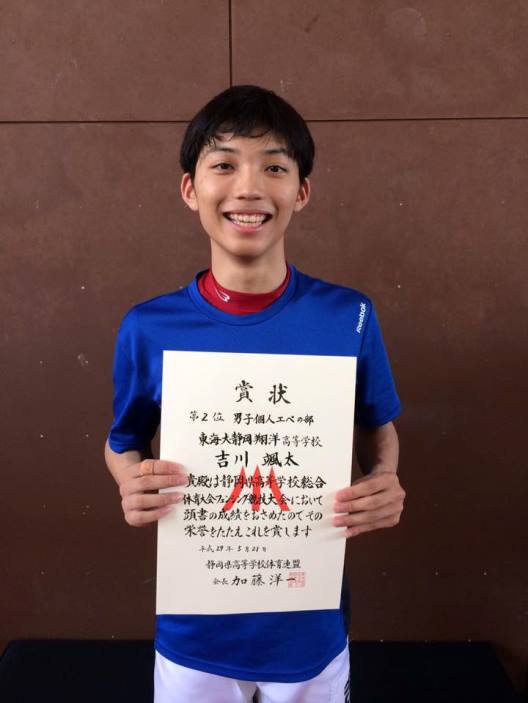 Reebok
賞状
第2位 男子個人エペの部
東海大静岡翔洋高等学校
吉川 颯太
貴殿は静岡県高等学校総合
体育大会フェンシング競技大会において
頭書の成績をおさめたのでその
栄誉をたたえこれを賞します
平成29年5月21日
静岡県高等学校体育連盟
会長 加藤洋一